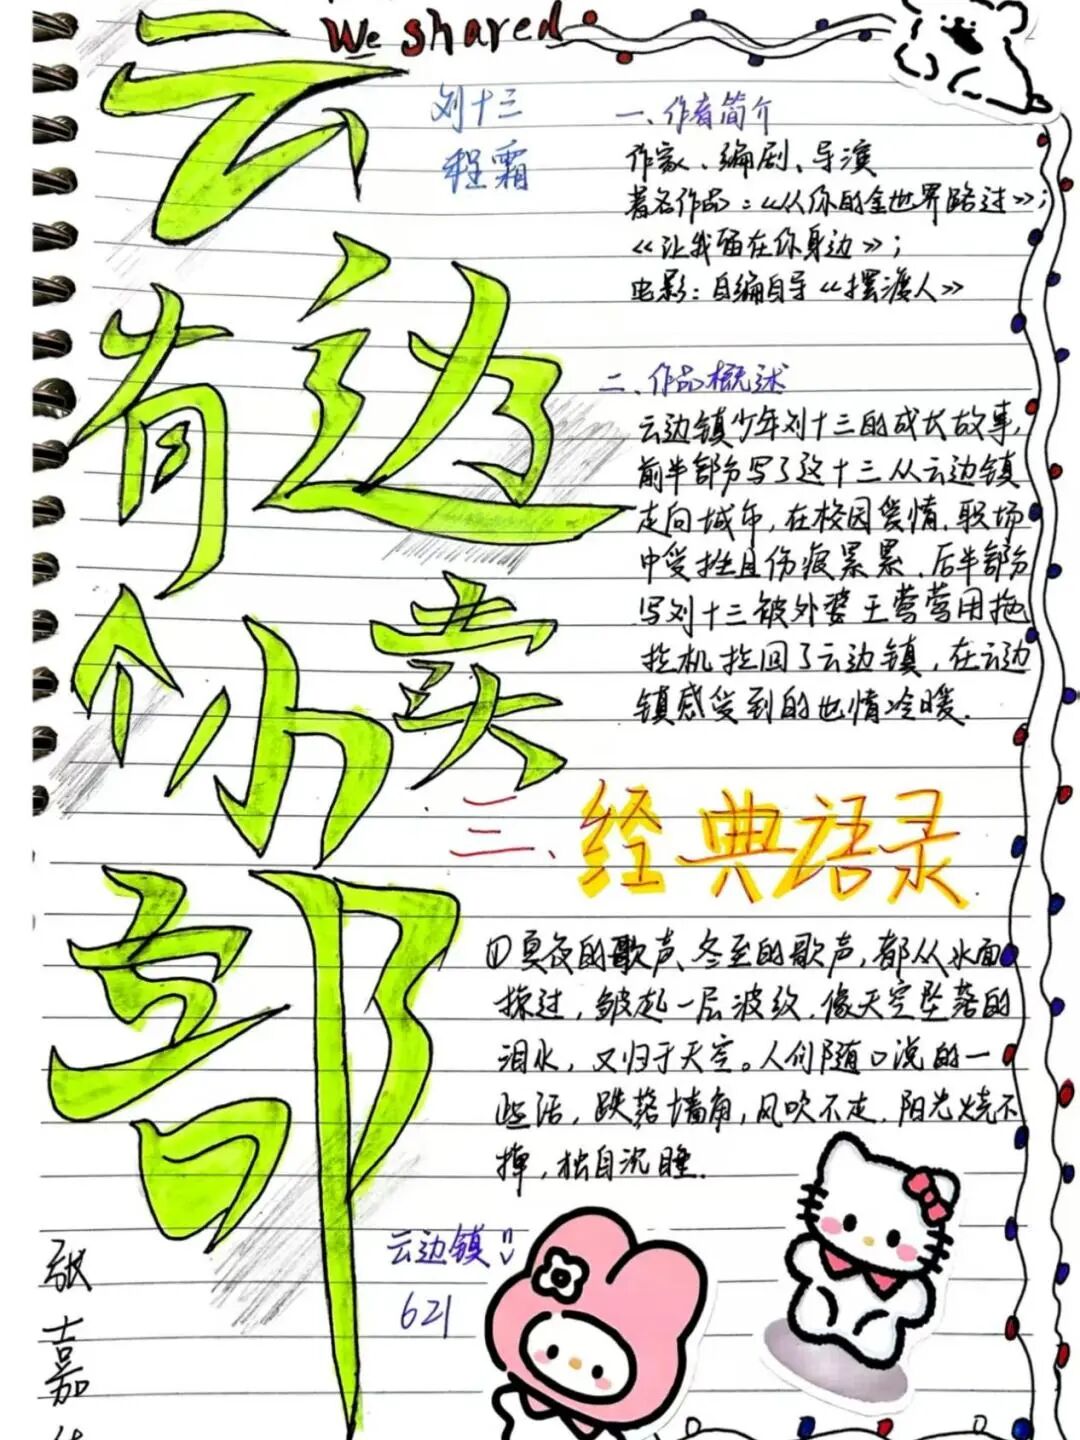 We shared
云边有个小卖部
刘十三
程霜
一、作者简介
作家、编剧、导演
著名作品：《从你的全世界路过》；
《让我留在你身边》；
电影：自编自导《摆渡人》
二、作品概述
云边镇少年刘十三的成长故事，
前半部分写了这十三从云边镇
走向城市，在校园爱情、职场
中受挫且伤痕累累，后半部分
写刘十三被外婆王莺莺用拖
拉机拉回了云边镇，在云边
镇感受到的也情冷暖.
三、经典语录
①夏夜的歌声、冬至的歌声，都从水面
掠过，皱起一层波纹，像天空坠落的
泪水，又归于天空。人们随口说的一
些话，跌落墙角，风吹不走，阳光烧不
掉，独自沉睡.
云边镇
621
张嘉